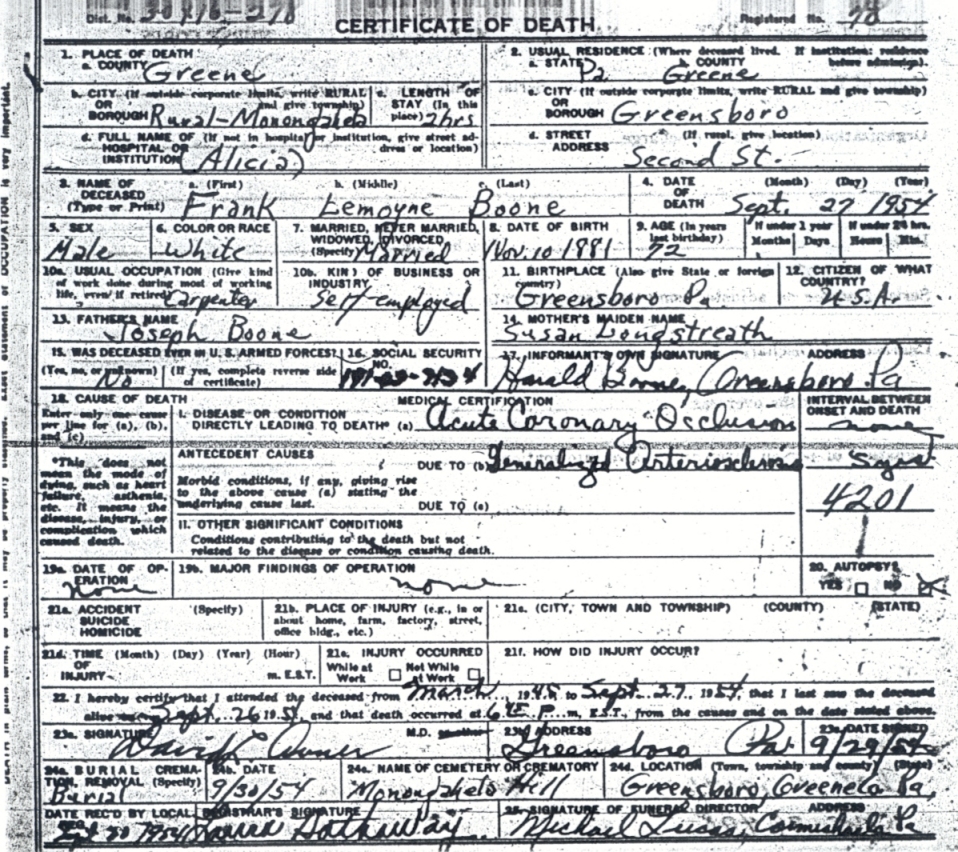 Dist. No. 30X16-278
CERTIFICATE OF DEATH
Registered No. 78
1. PLACE OF DEATH
a. COUNTY Greene
2. USUAL RESIDENCE (Where deceased lived. If institution: residence before admission).
a. STATE Pa b. COUNTY Greene
b. CITY (If outside corporate limits, write RURAL and give township) OR BOROUGH Rural-Monongahela
c. LENGTH OF STAY (In this place) 2hrs
c. CITY (If outside corporate limits, write RURAL and give township) OR BOROUGH Greensboro
d. FULL NAME OF (If not in hospital or institution, give street address or location) HOSPITAL OR INSTITUTION (Alicia)
d. STREET ADDRESS (If rural, give location) Second St.
3. NAME OF DECEASED (Type or Print)
a. (First) Frank
b. (Middle) Lemoyne
c. (Last) Boone
4. DATE OF DEATH (Month) (Day) (Year) Sept. 27 1954
5. SEX Male
6. COLOR OR RACE White
7. MARRIED, NEVER MARRIED, WIDOWED, DIVORCED (Specify) Married
8. DATE OF BIRTH Nov. 10 1881
9. AGE (In years last birthday) 72
If under 1 year Months Days
If under 24 hrs. Hours Min.
10a. USUAL OCCUPATION (Give kind of work done during most of working life, even if retired) Carpenter
10b. KIND OF BUSINESS OR INDUSTRY Self-employed
11. BIRTHPLACE (Also give State or foreign country) Greensboro Pa
12. CITIZEN OF WHAT COUNTRY? U.S.A.
13. FATHER'S NAME Joseph Boone
14. MOTHER'S MAIDEN NAME Susan Longstreath
15. WAS DECEASED EVER IN U. S. ARMED FORCES?
(Yes, no, or unknown) (If yes, complete reverse side of certificate) No
16. SOCIAL SECURITY NO.
17. INFORMANT'S OWN SIGNATURE ADDRESS
Harald Boone, Greensboro Pa
18. CAUSE OF DEATH
Enter only one cause per line for (a), (b), and (c)
MEDICAL CERTIFICATION
INTERVAL BETWEEN ONSET AND DEATH
I. DISEASE OR CONDITION DIRECTLY LEADING TO DEATH* (a) Acute Coronary Occlusion none
*This does not mean the mode of dying, such as heart failure, asthenia, etc. It means the disease, injury, or complication which caused death.
ANTECEDENT CAUSES
DUE TO (b) Generalized Arteriosclerosis
Morbid conditions, if any, giving rise to the above cause (a) stating the underlying cause last.
DUE TO (c)
4201
II. OTHER SIGNIFICANT CONDITIONS
Conditions contributing to the death but not related to the disease or condition causing death.
19a. DATE OF OPERATION None
19b. MAJOR FINDINGS OF OPERATION none
20. AUTOPSY? YES NO X
21a. ACCIDENT SUICIDE HOMICIDE (Specify)
21b. PLACE OF INJURY (e.g., in or about home, farm, factory, street, office bldg., etc.)
21c. (CITY, TOWN AND TOWNSHIP) (COUNTY) (STATE)
21d. TIME (Month) (Day) (Year) (Hour) OF INJURY m. E.S.T.
21e. INJURY OCCURRED While at Work Not While at Work
21f. HOW DID INJURY OCCUR?
22. I hereby certify that I attended the deceased from March 1948 to Sept. 27 1954, that I last saw the deceased
alive on Sept. 26 1954, and that death occurred at P m, E.S.T., from the causes and on the date stated above.
23a. SIGNATURE M.D.
23b. ADDRESS Greensboro Pa.
23c. DATE SIGNED 9/29/54
24a. BURIAL, CREMATION, REMOVAL (Specify) Burial
24b. DATE 9/30/54
24c. NAME OF CEMETERY OR CREMATORY Monongahela Hill
24d. LOCATION (Town, township and county) (State) Greensboro, Greene Co Pa.
DATE REC'D BY LOCAL REG.
REGISTRAR'S SIGNATURE Laura Hathaway
25. SIGNATURE OF FUNERAL DIRECTOR ADDRESS
Michael Lucas, Carmichaels Pa